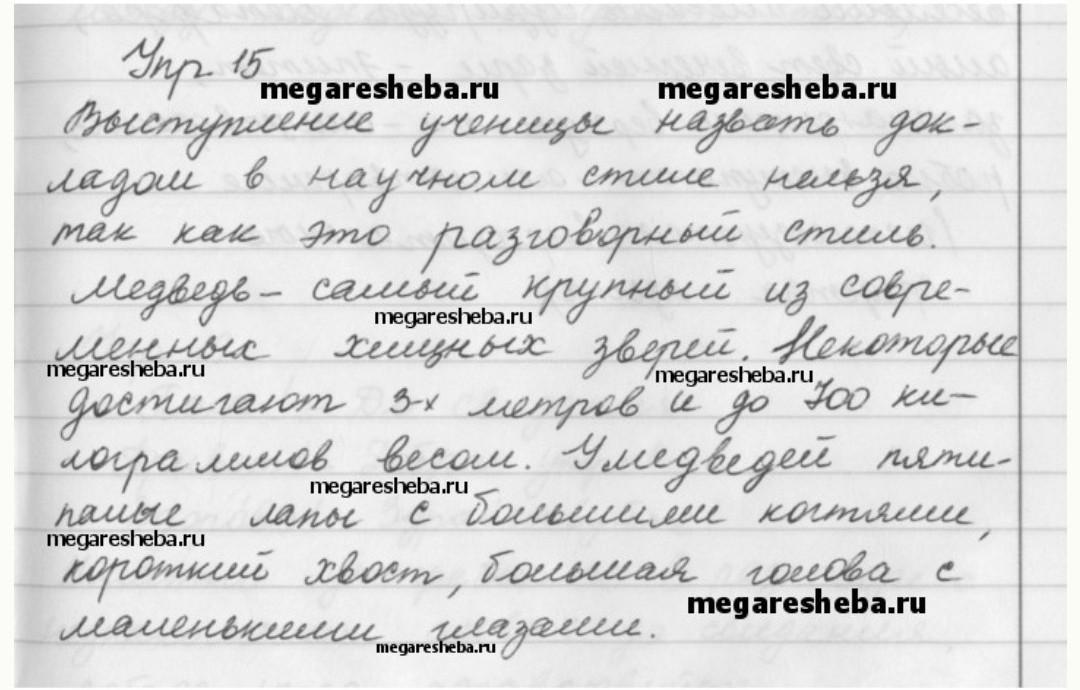 Упр. 15
megaresheba.ru megaresheba.ru
Выступление ученицы назвать док-
ладом в научном стиле нельзя,
так как это разговорный стиль.
Медведь – самый крупный из совре-
megaresheba.ru
менных хищных зверей. Некоторые
megaresheba.ru megaresheba.ru
достигают 3-х метров и до 700 ки-
лограммов весом. У медведей пяти-
megaresheba.ru
палые лапы с большими когтями,
megaresheba.ru
короткий хвост, большая голова с
megaresheba.ru
маленькими глазами.
megaresheba.ru